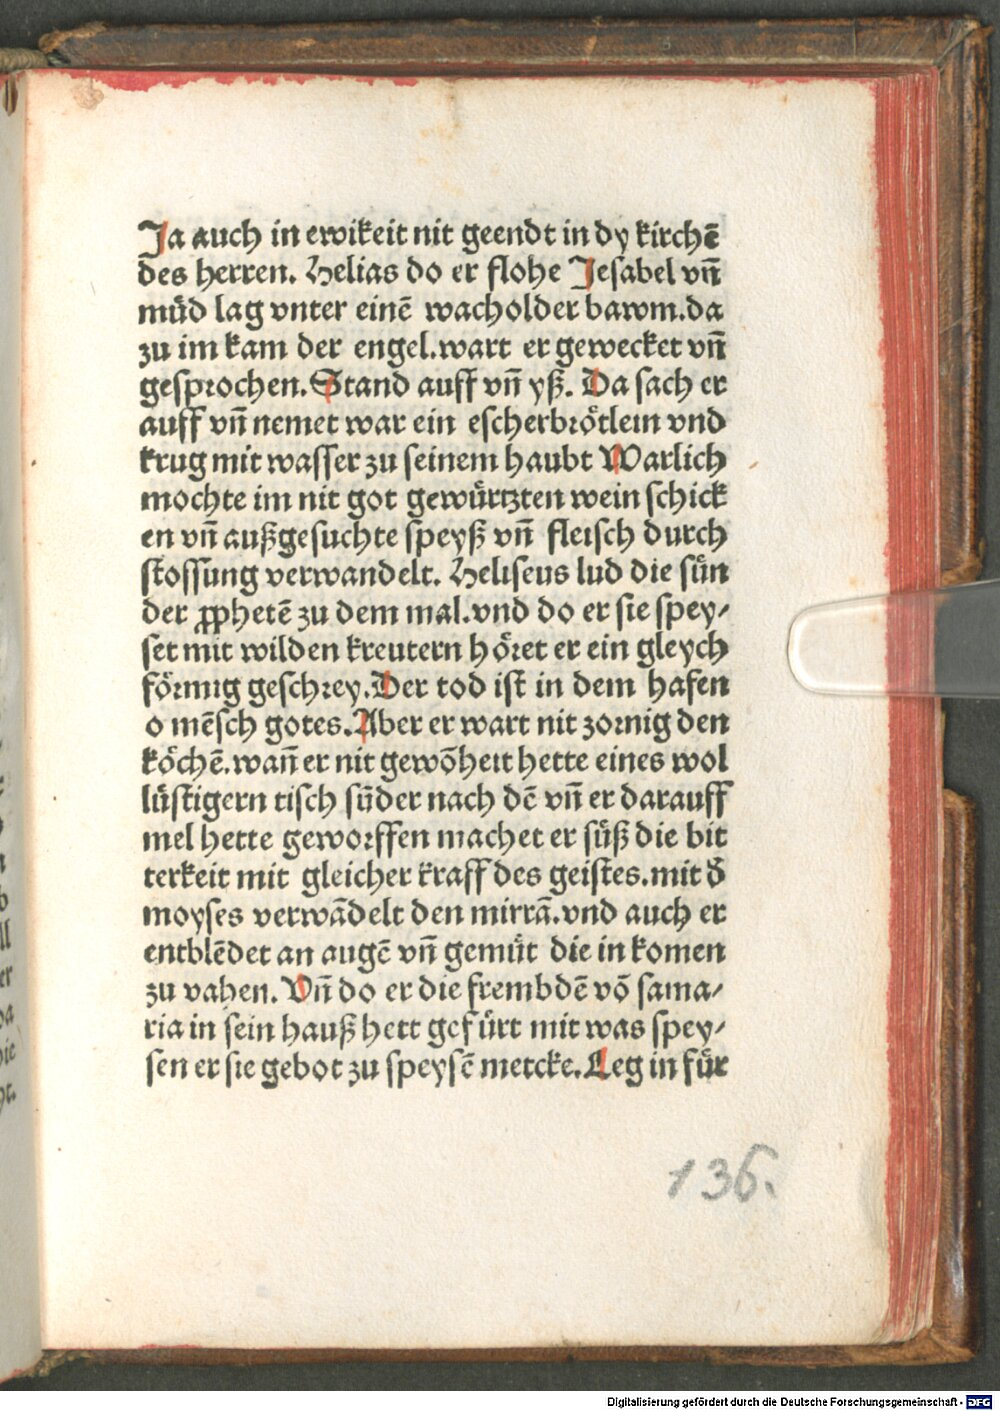 Ja auch in ewikeit nit geendt in dy kirchē
des herren. Helias do er flohe Jesabel vñ
müd lag vnter einē wacholder bawm.da
zu im kam der engel.wart er gewecket vñ
gesprochen.Stand auff vñ yß. Da sach er
auff vñ nemet war ein escherbrötlein vnd
krug mit wasser zu seinem haubt Warlich
mochte im nit got gewürtzten wein schick
en vñ außgesuchte speyß vñ fleisch durch
stossung verwandelt. Heliseus lud die sün
der ꝓphetē zu dem mal.vnd do er sie spey/
set mit wilden kreutern höret er ein gleych
förmig geschrey.Der tod ist in dem hafen
o mēsch gotes.Aber er wart nit zornig den
köchē.wañ er nit gewōheit hette eines wol
lüstigern tisch sūder nach dē vñ er darauff
mel hette geworffen machet er süß die bit
terkeit mit gleicher kraff des geistes.mit ð
moyses verwādelt den mirrā.vnd auch er
entblēdet an augē vñ gemüt die in komen
zu vahen. Vñ do er die frembdē vō sama/
ria in sein hauß hett gefürt mit was spey/
sen er sie gebot zu speysē metcke.Leg in für
136.
Digitalisierung gefördert durch die Deutsche Forschungsgemeinschaft - DFG